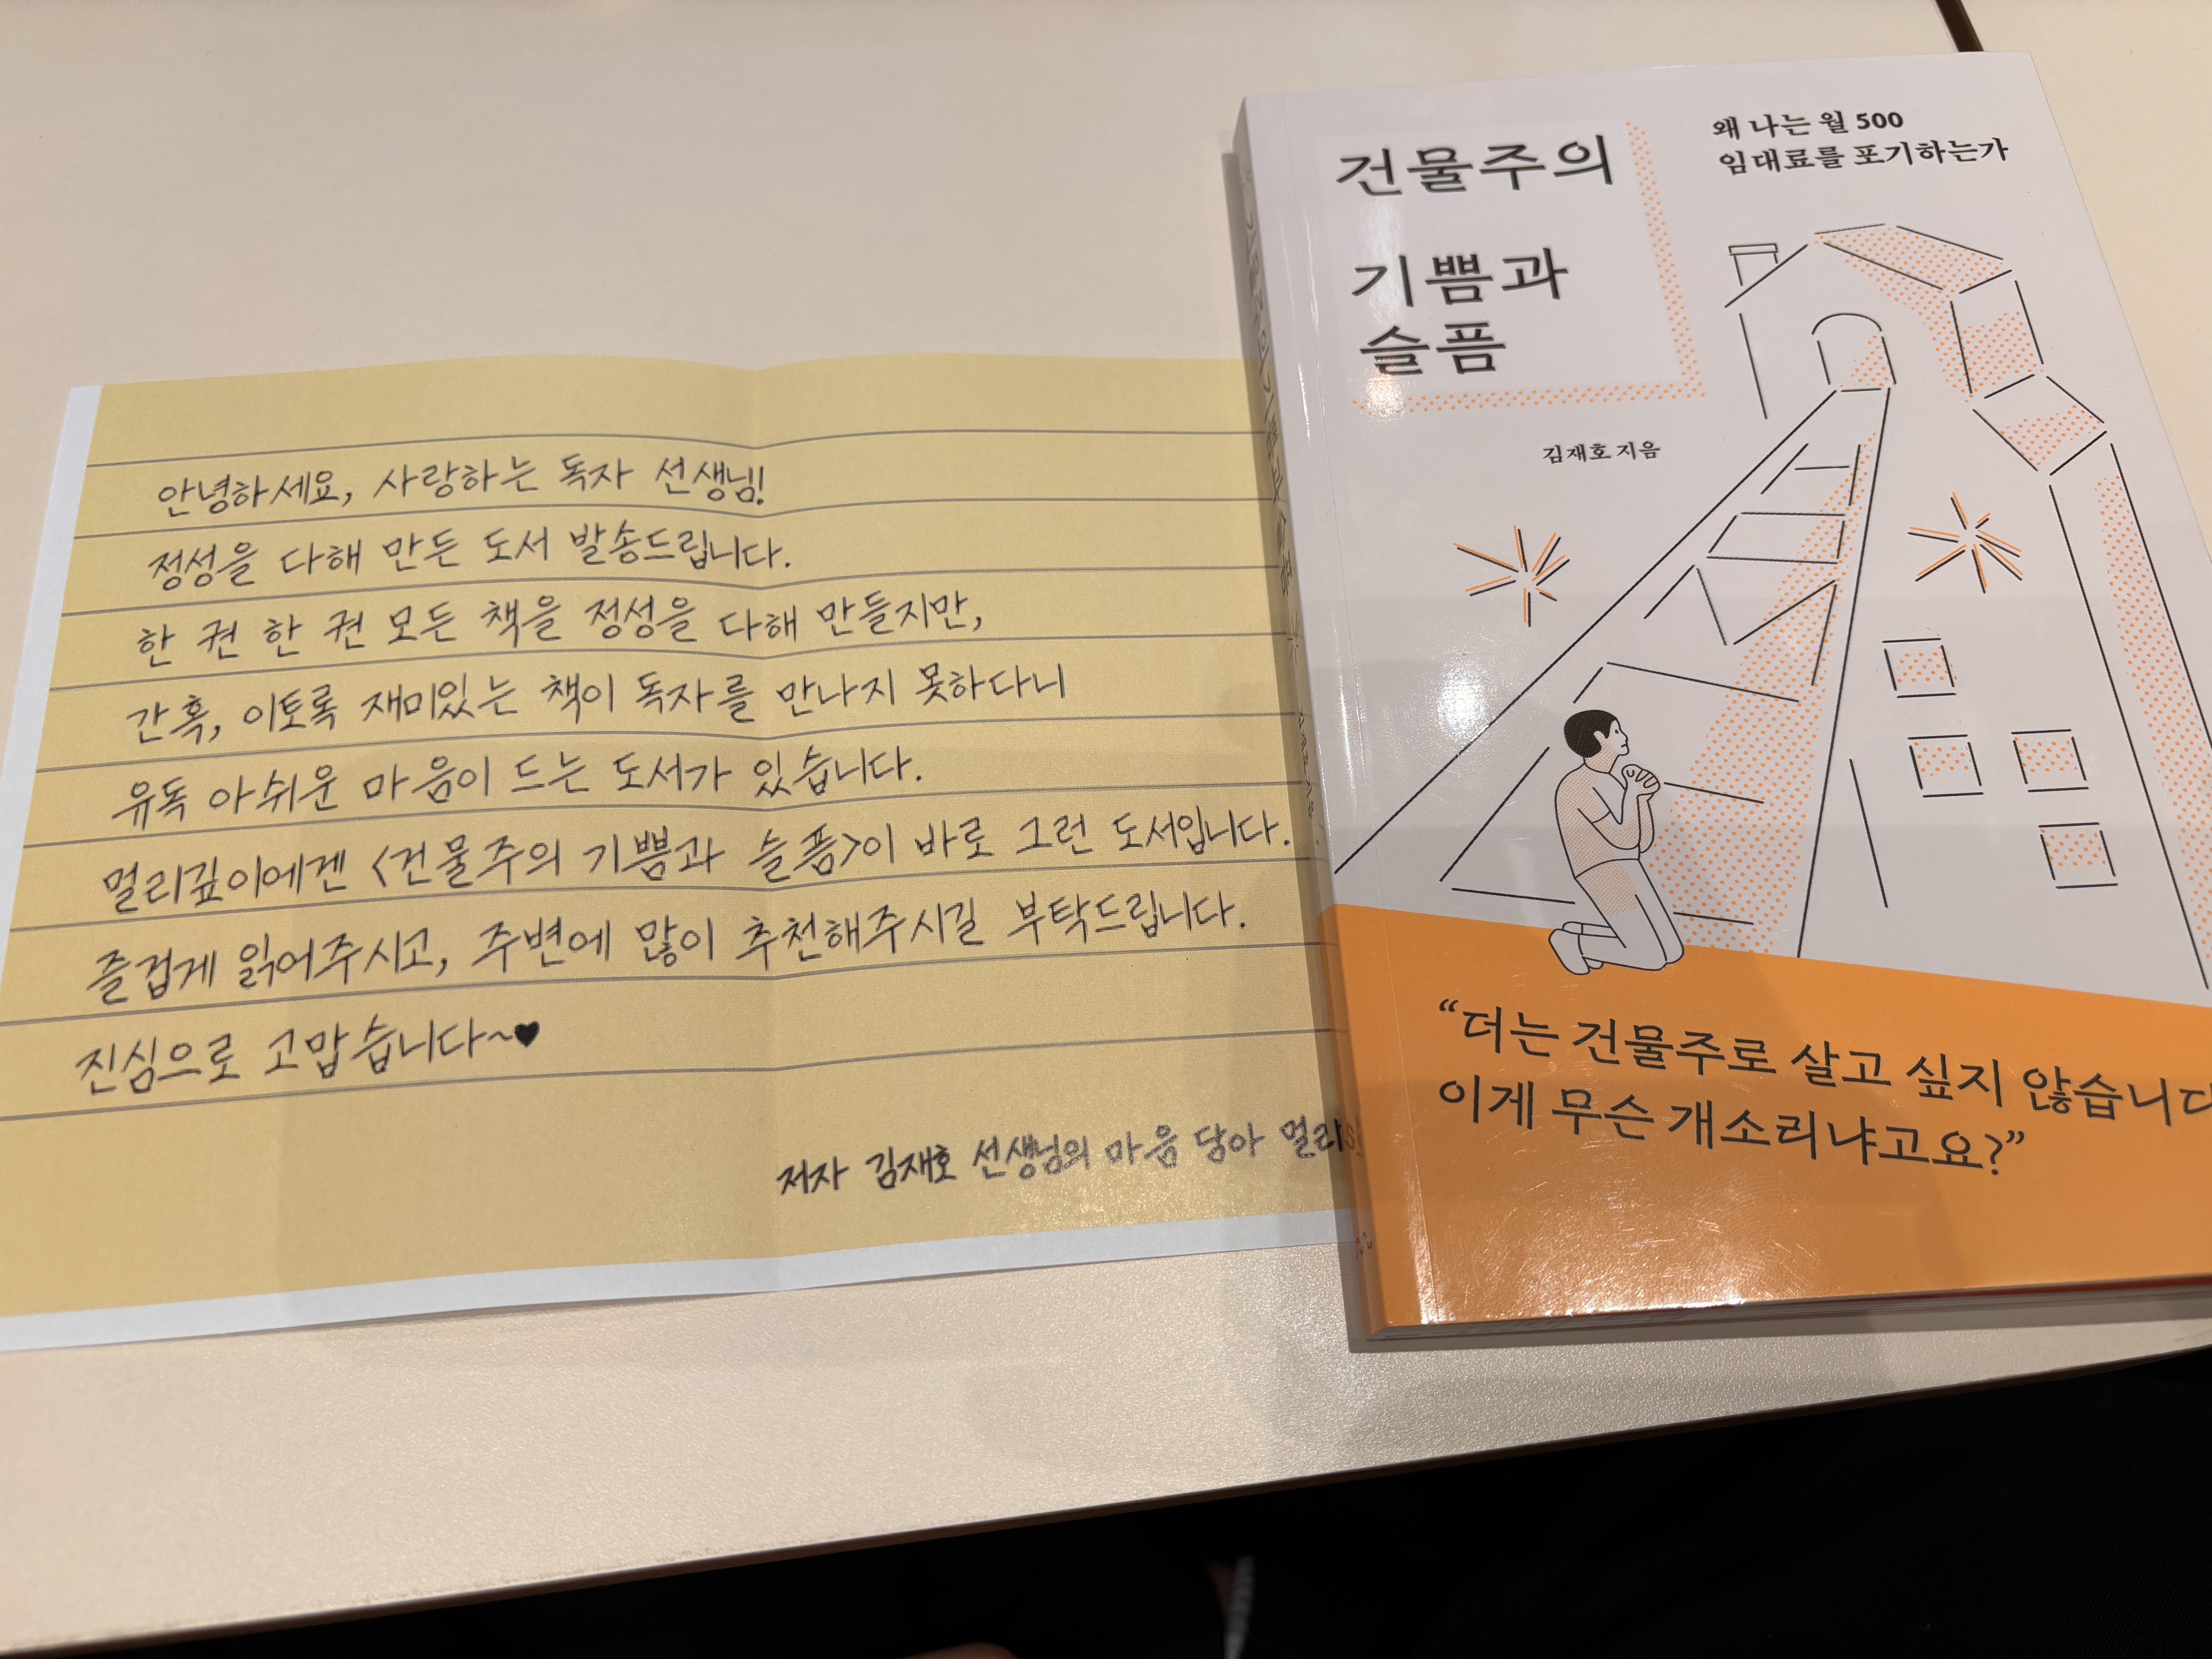 안녕하세요, 사랑하는 독자 선생님!
정성을 다해 만든 도서 발송드립니다.
한 권 한 권 모든 책을 정성을 다해 만들지만,
간혹, 이토록 재미있는 책이 독자를 만나지 못하다니
유독 아쉬운 마음이 드는 도서가 있습니다.
멀리깊이에겐 <건물주의 기쁨과 슬픔>이 바로 그런 도서입니다.
즐겁게 읽어주시고, 주변에 많이 추천해주시길 부탁드립니다.
진심으로 고맙습니다~♥
저자 김재호 선생님의 마음 담아 멀리
건물주의
기쁨과
슬픔
왜 나는 월 500
임대료를 포기하는가
김재호 지음
“더는 건물주로 살고 싶지 않습니다
이게 무슨 개소리냐고요?”